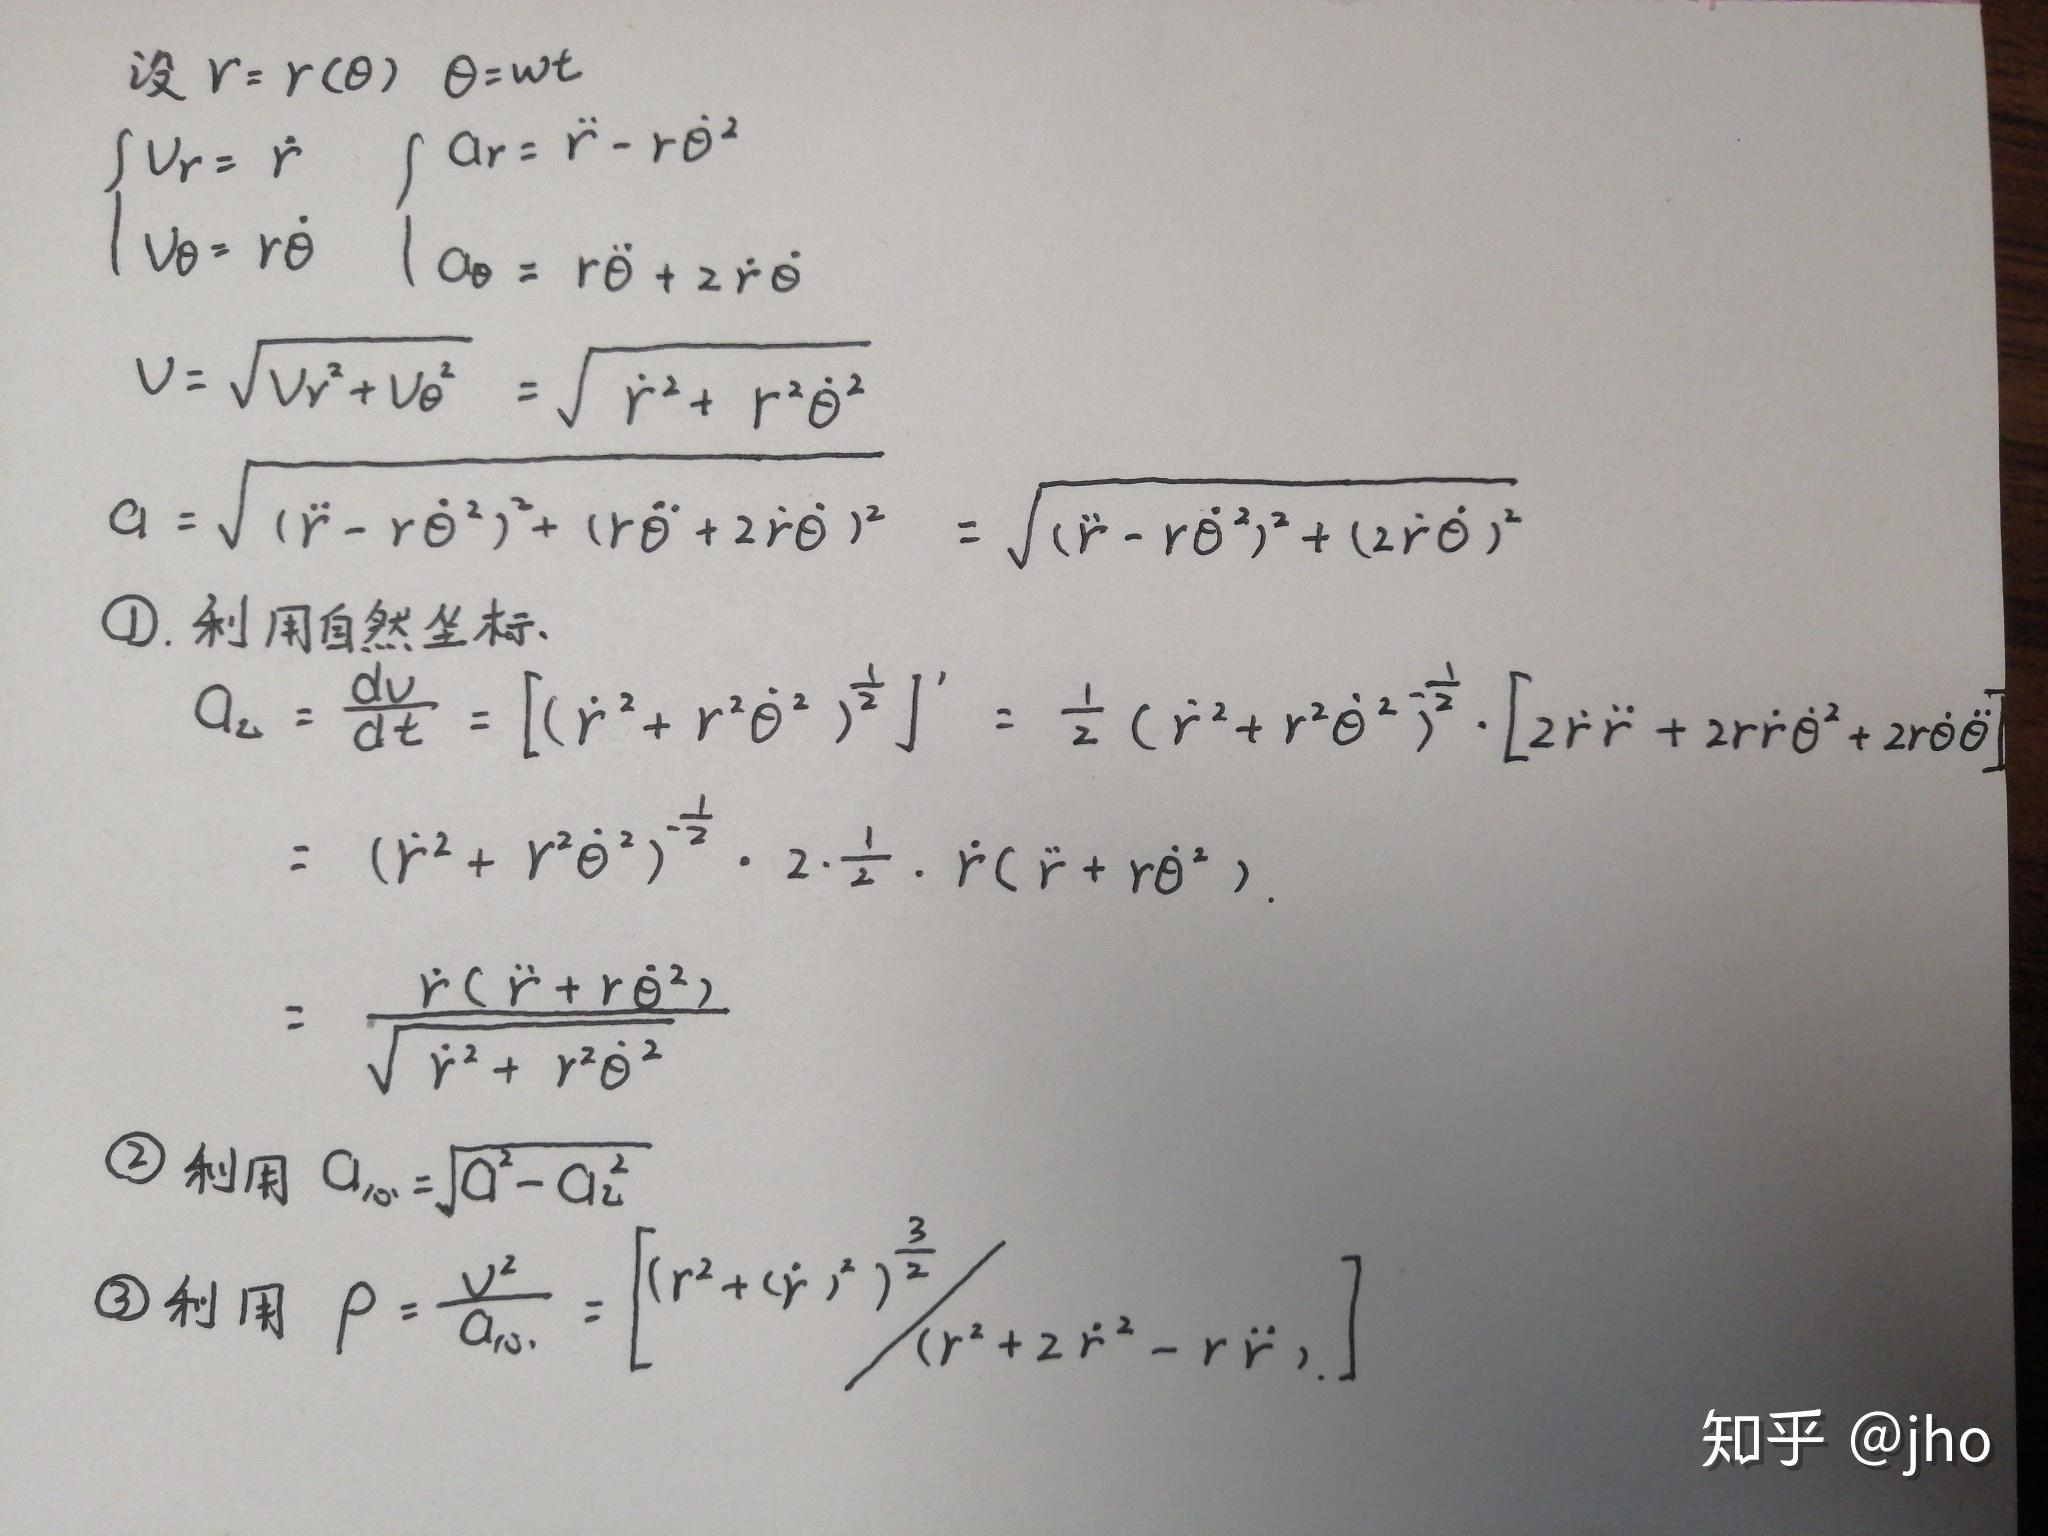 设 r = r(θ)  θ = wt
{ Vr = ṙ   { ar = r̈ - rθ̇²
Vθ = rθ̇   aθ = rθ̈ + 2ṙθ̇
V = √(Vr² + Vθ²) = √(ṙ² + r²θ̇²)
a = √((r̈ - rθ̇²)² + (rθ̈ + 2ṙθ̇)²) = √((r̈ - rθ̇²)² + (2ṙθ̇)²)
①. 利用自然坐标.
a_τ = dv/dt = [(ṙ² + r²θ̇²)^(1/2)]' = 1/2 (ṙ² + r²θ̇²)^(-1/2) · [2ṙr̈ + 2rṙθ̇² + 2rθ̇θ̈]
= (ṙ² + r²θ̇²)^(-1/2) · 2 · 1/2 · ṙ(r̈ + rθ̇²).
= ṙ(r̈ + rθ̇²) / √(ṙ² + r²θ̇²)
② 利用 a_心 = √(a² - a_τ²)
③ 利用 ρ = v²/a_心 = [(r² + (ṙ)²)^(3/2) / (r² + 2ṙ² - rr̈).]
知乎 @jho